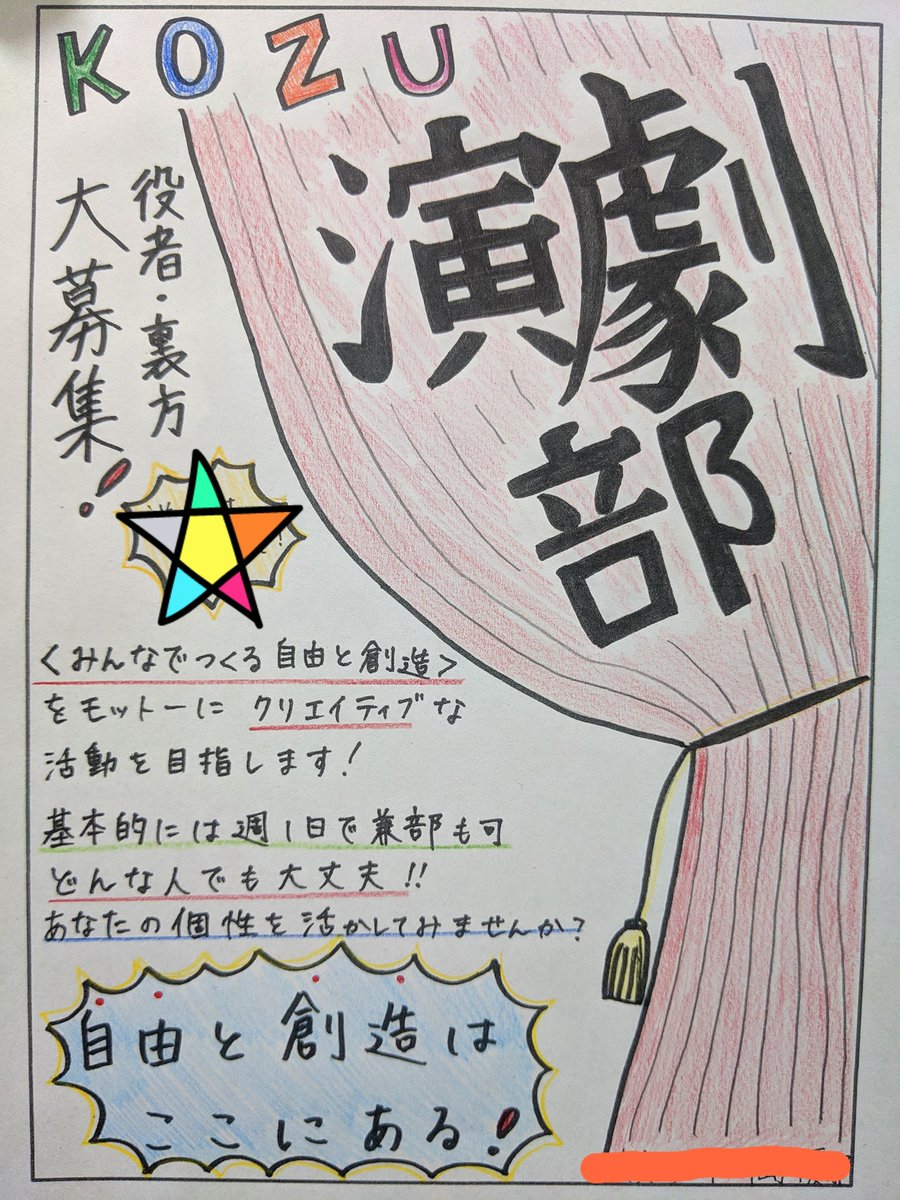 KOZU
演劇部
役者・裏方
大募集!
<みんなでつくる自由と創造>
をモットーにクリエイティブな
活動を目指します!
基本的には週1日で兼部も可
どんな人でも大丈夫!!
あなたの個性を活かしてみませんか?
自由と創造は
ここにある!